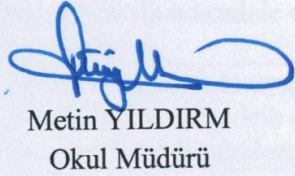 Metin YILDIRM
Okul Müdürü